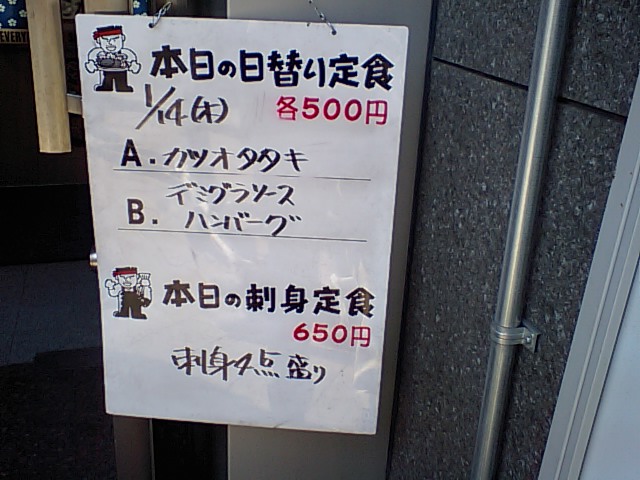 EVERY
本日の日替り定食
1/14(木)
各500円
A. カツオタタキ
デミグラソース
B. ハンバーグ
本日の刺身定食
650円
刺身4点盛り